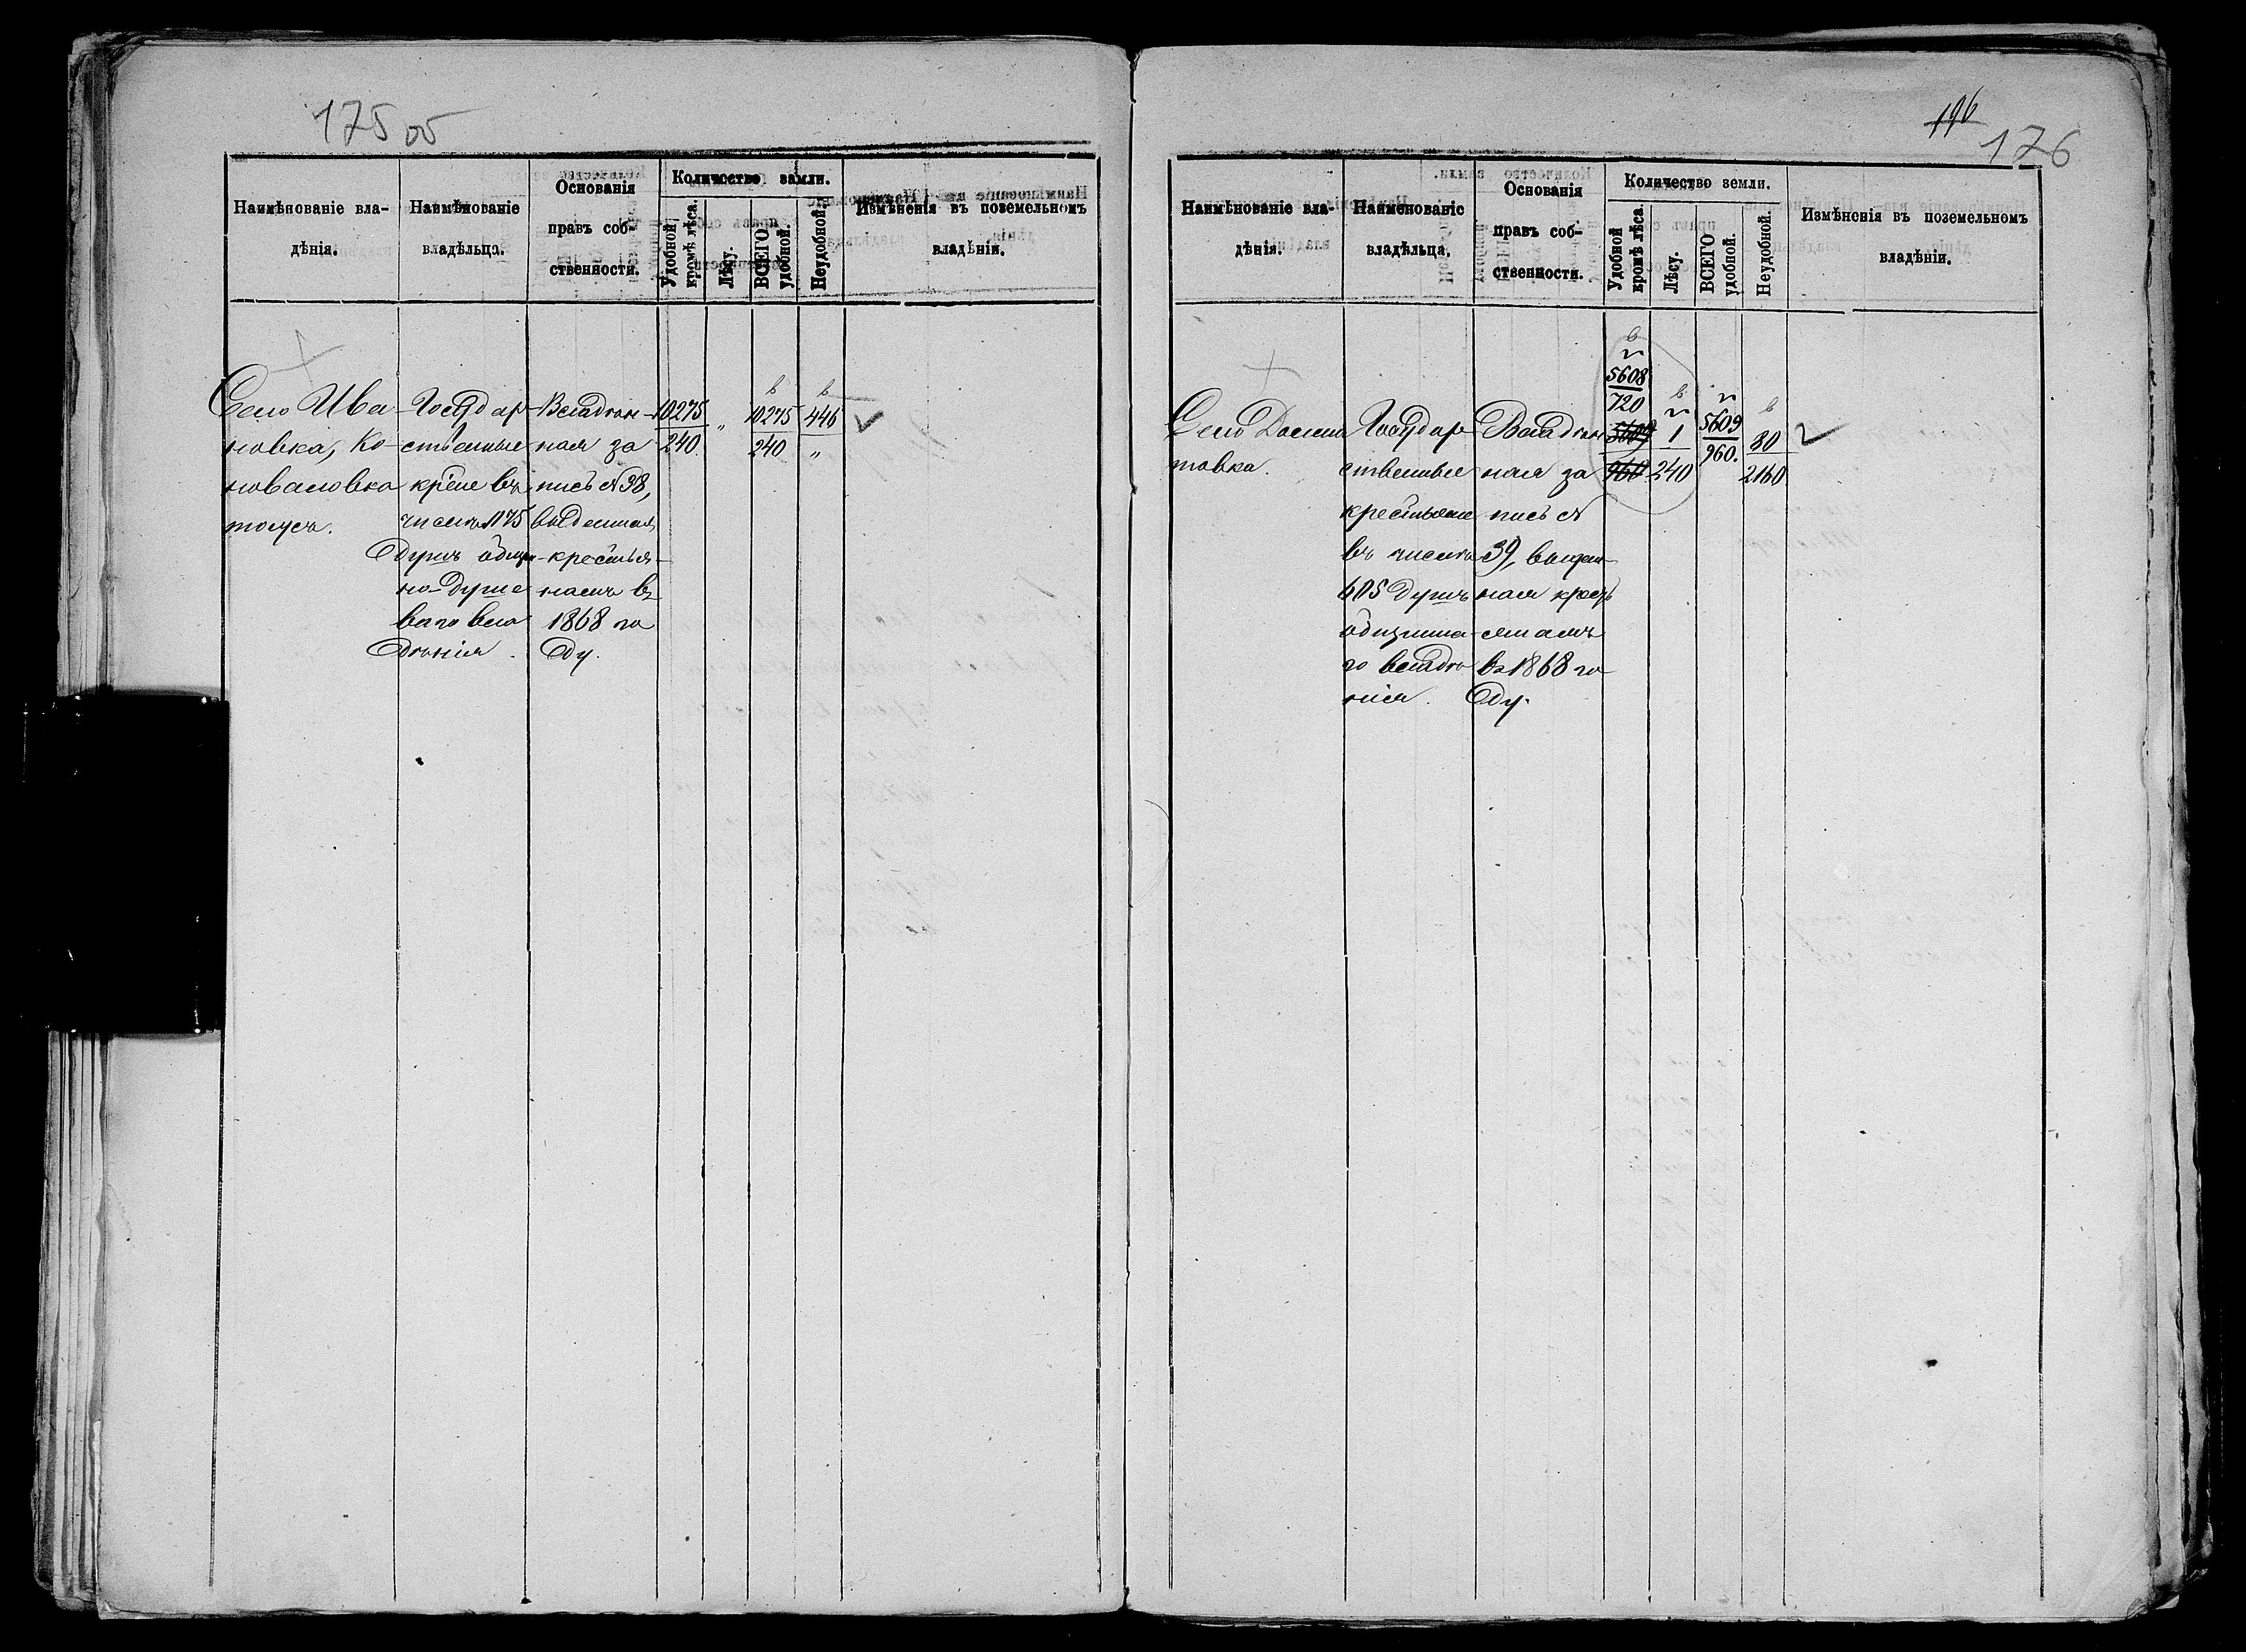 175 об
Наимѣнованіе вла-
дѣнія.
Наимѣнованіе
владѣльца.
Основанія
правъ соб-
ственности.
Количество земли.
Удобной
кромѣ лѣса.
Лѣсу.
ВСЕГО
удобной.
Неудобной.
Измѣненія въ поземельномъ
владѣніи.
Село Ива-
новка, Ко-
новаловка
тожъ.
Государ-
ственные
кр-не въ
числѣ 1175
душъ общи-
но душе
ваго вла
дѣнія.
Владѣн-
ная за
пись №38,
выденная
крестья-
намъ въ
1868 го
ду.
10275
240
„
10275
240
446
„
196
176
Наимѣнованіе вла-
дѣнія.
Наименованіе
владѣльца.
Основанія
правъ соб-
ственности.
Количество земли.
Удобной
кромѣ лѣса.
Лѣсу.
ВСЕГО
удобной.
Неудобной.
Измѣненія въ поземельномъ
владѣніи.
Село
товка.
Государ-
ственные
крестьяне
въ числѣ
605 душъ
общинна-
го владѣ
нія.
Владѣн
ная за
пись №
39, выдан-
ная крест
янамъ
въ 1868 го
ду.
5608
720
5609
960
1
240
5609
960.
80
2160